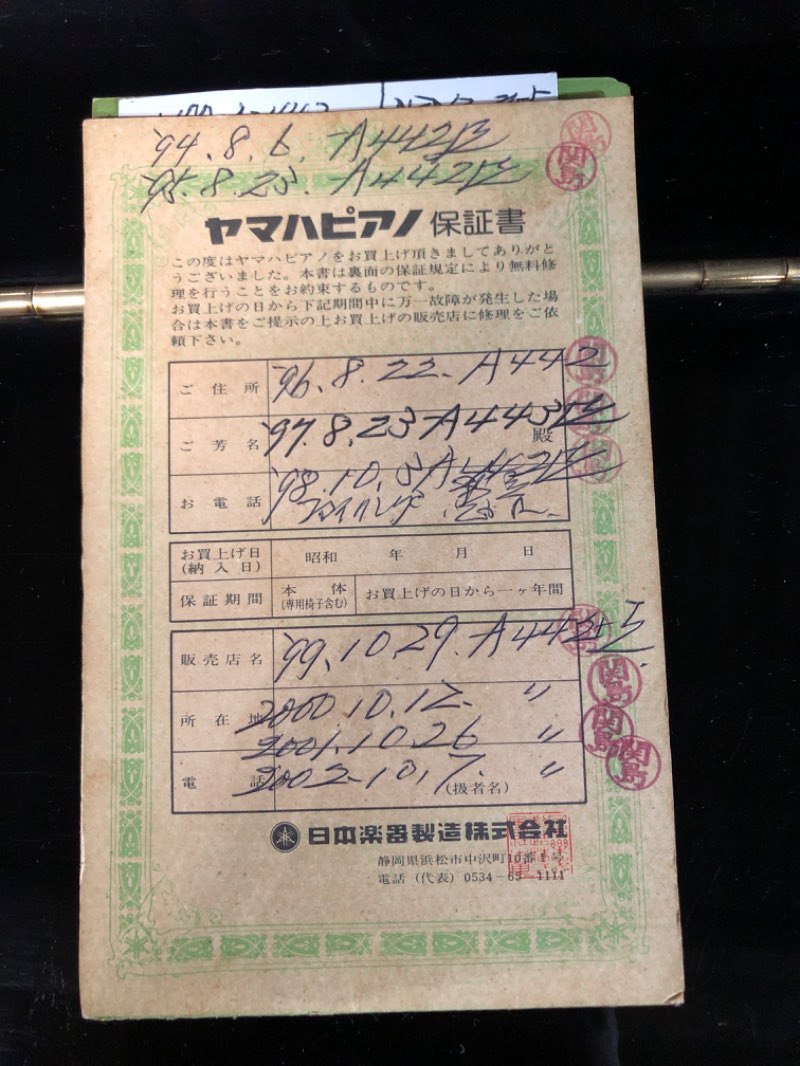 '94.8.6. A442
'95.8.23. A442
関島
関島
ヤマハピアノ 保証書
この度はヤマハピアノをお買上げ頂きましてありがと
うございました。本書は裏面の保証規定により無料修
理を行うことをお約束するものです。
お買上げの日から下記期間中に万一故障が発生した場
合は本書をご提示の上お買上げの販売店に修理をご依
頼下さい。
ご住所 '96.8.22. A442
ご芳名 '97.8.23 A443 殿
お電話 '98.10.5 A442
お買上げ日
(納入日) 昭和 年 月 日
保証期間 本体
(専用椅子含む) お買上げの日から一ヶ年間
販売店名 '99.10.29. A442
所在地 2000.10.12. 〃
2001.10.26 〃
電話 2002.10.7. 〃
(扱者名)
関島
関島
関島
日本楽器製造株式会社
静岡県浜松市中沢町10番1号
電話(代表)0534-65-1111